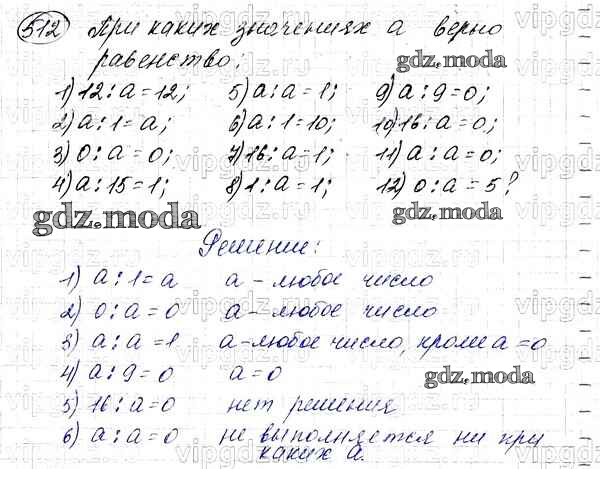 512 При каких значениях а верно
равенство:
1) 12 : а = 12; 5) а : а = 1; 9) а : 9 = 0;
2) а : 1 = а; 6) а : 1 = 10; 10) 16 : а = 0;
3) 0 : а = 0; 7) 16 : а = 1; 11) а : а = 0;
4) а : 15 = 1; 8) 1 : а = 1; 12) 0 : а = 5?
gdz.moda
Решение:
1) а : 1 = а а - любое число
2) 0 : а = 0 а - любое число
3) а : а = 1 а - любое число, кроме а = 0
4) а : 9 = 0 а = 0
5) 16 : а = 0 нет решения
6) а : а = 0 не выполняется ни при
каких а.
gdz.moda
gdz.moda
gdz.moda
vipgdz.ru